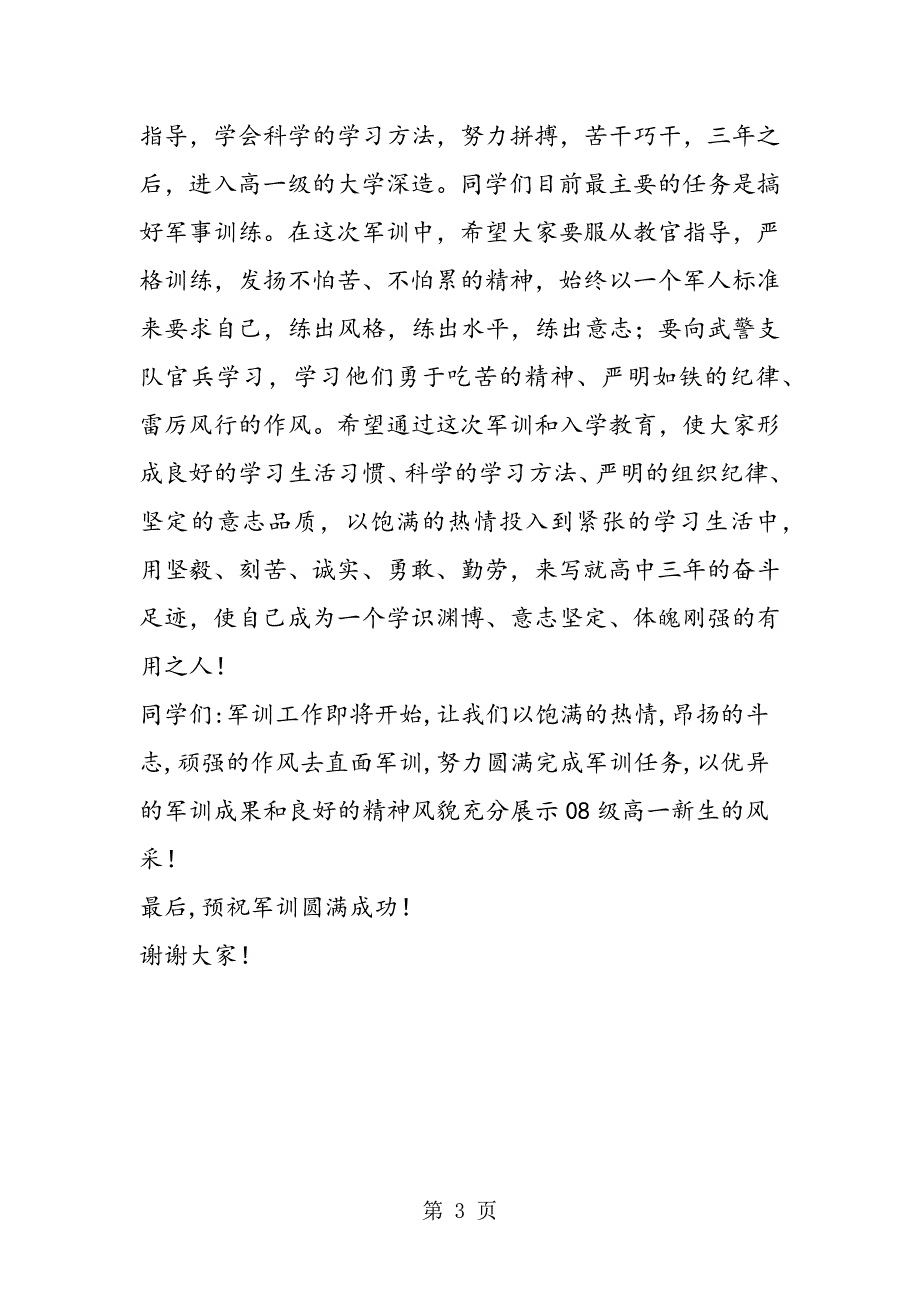 指导，学会科学的学习方法，努力拼搏，苦干巧干，三年之
后，进入高一级的大学深造。同学们目前最主要的任务是搞
好军事训练。在这次军训中，希望大家要服从教官指导，严
格训练，发扬不怕苦、不怕累的精神，始终以一个军人标准
来要求自己，练出风格，练出水平，练出意志；要向武警支
队官兵学习，学习他们勇于吃苦的精神、严明如铁的纪律、
雷厉风行的作风。希望通过这次军训和入学教育，使大家形
成良好的学习生活习惯、科学的学习方法、严明的组织纪律、
坚定的意志品质，以饱满的热情投入到紧张的学习生活中，
用坚毅、刻苦、诚实、勇敢、勤劳，来写就高中三年的奋斗
足迹，使自己成为一个学识渊博、意志坚定、体魄刚强的有
用之人！
同学们:军训工作即将开始,让我们以饱满的热情,昂扬的斗
志,顽强的作风去直面军训,努力圆满完成军训任务,以优异
的军训成果和良好的精神风貌充分展示 08 级高一新生的风
采！
最后,预祝军训圆满成功！
谢谢大家！
第 3 页